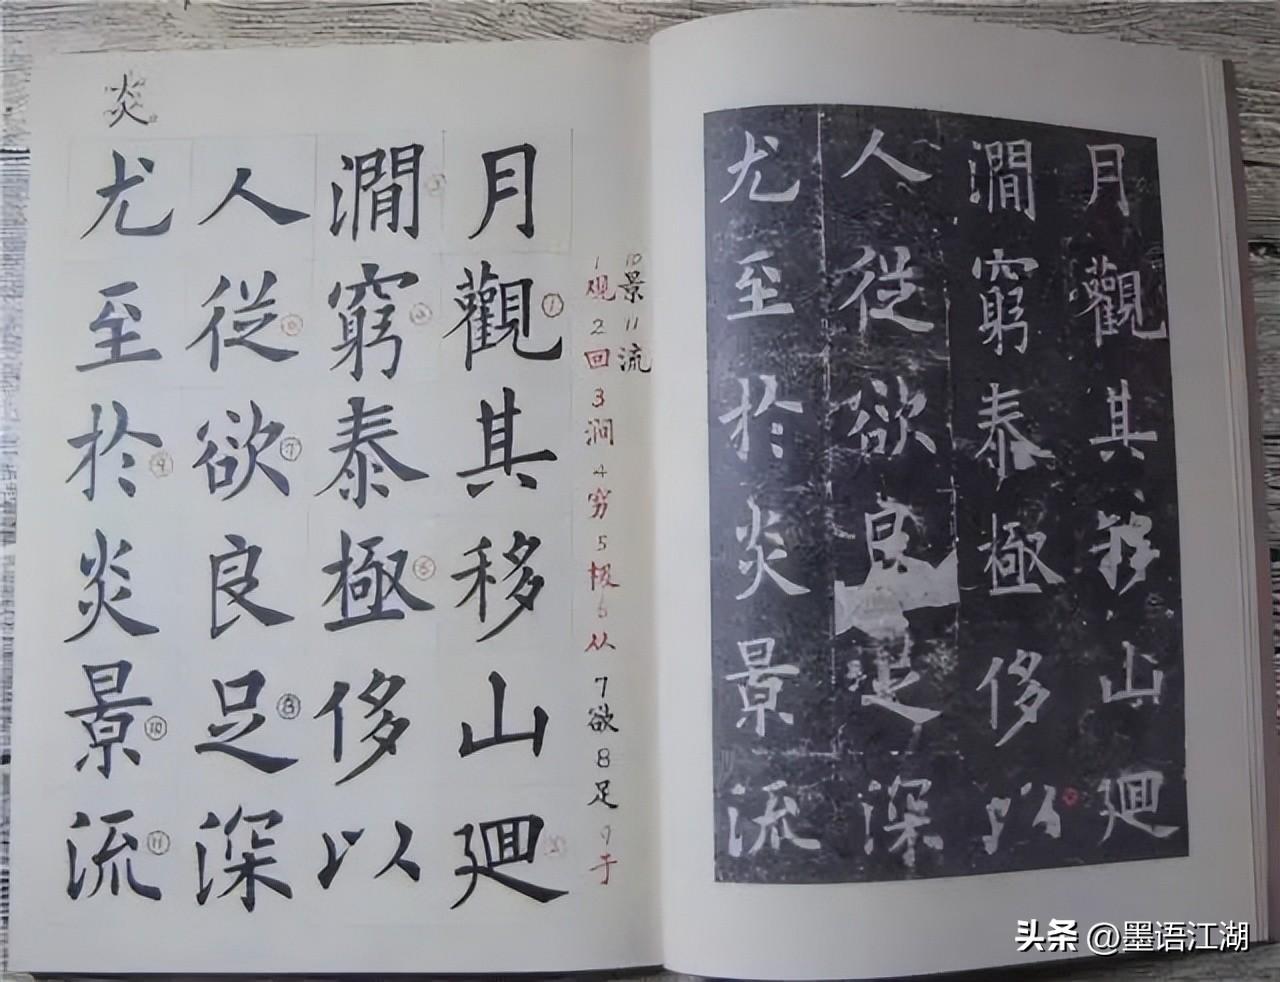 炎
月觀其移山廻
澗窮泰極侈以
人從欲良足深
尤至於炎景流
① ② ③ ④ ⑤ ⑥ ⑦ ⑧ ⑨ ⑩ ⑪
10景11流
1观2回3涧4穷5极6从7欲8足9于
月觀其移山廻
澗窮泰極侈以
人從欲良足深
尤至於炎景流
头条 @墨语江湖